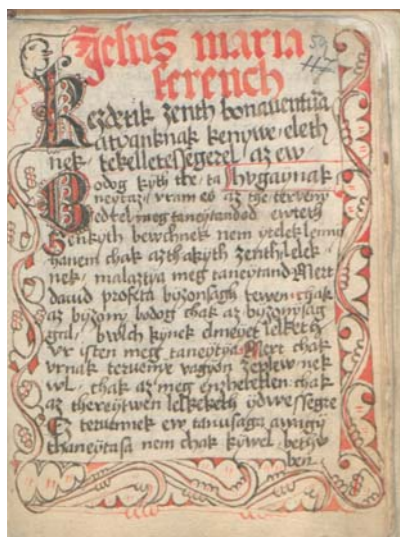 Jesus maria
ferench
Kezdetik zenth bonauentura
atyanknak kenywe eleth
nek tekelletessegerel az ew
hwgaynak
Bodog kyth the ta
neytaz vram es az the terveny
Bedtel meg taneytandod ewteth
Senkyth bewchnek nem ytelek lenny
hanem chak azth akyth zenth lelek
nek malaztya meg taneytand Mert
dauid profeta byzonsagh tewen chak
az byzony bodog chak az byzonysag
gal bwlch kynek elmeyet lelketh
vr isten meg taneytya Mert chak
vrnak teruenye vagyon zeplew nek
wl chak az meg enzhetetlen chak
az thereytwen lelkeketh ydwessegre
Ez teruennek ew tanusaga auagy
thaneytasa nem chak kywel betyw
ben